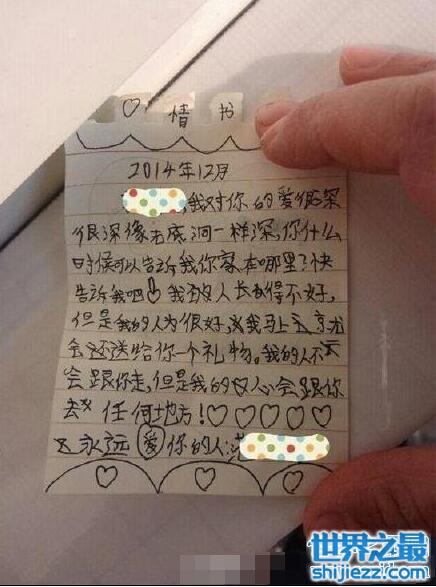 ♡情书
2014年12月
,我对你的爱很深
很深像无底洞一样深,你什么
时候可以告诉我你家在哪里?快
告诉我吧!我人长得不好,
但是我的人为很好,我马上
会还送给你一个礼物。我的人不
会跟你走,但是我的心会跟你
去任何地方!♡♡♡♡♡
永远爱你的人:
世界之最
shijiezz.com